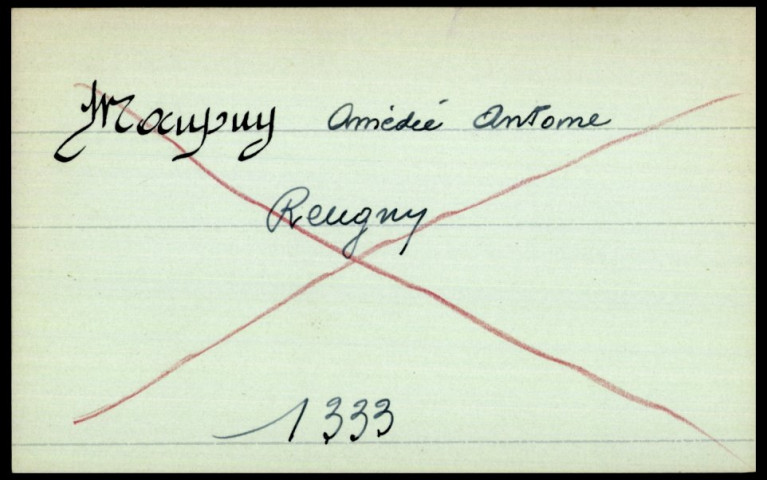 Maupuy Amédée Antoine
Reugny
1333